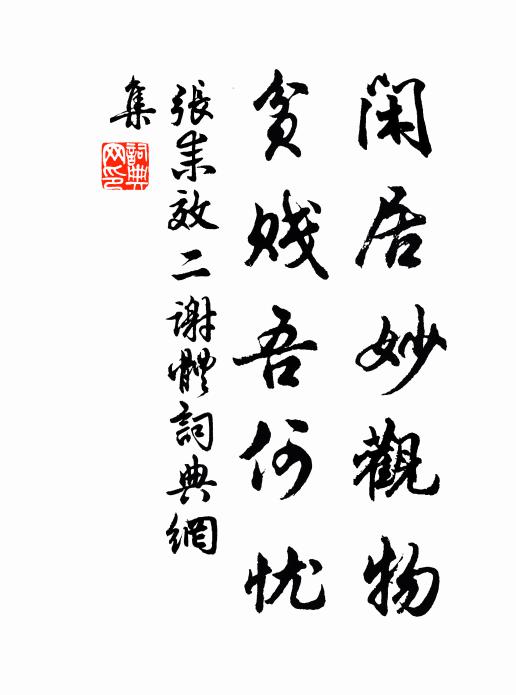 閑居妙觀物
貧賤吾何忧
張耒效二謝體詞典網
集
詞典网印